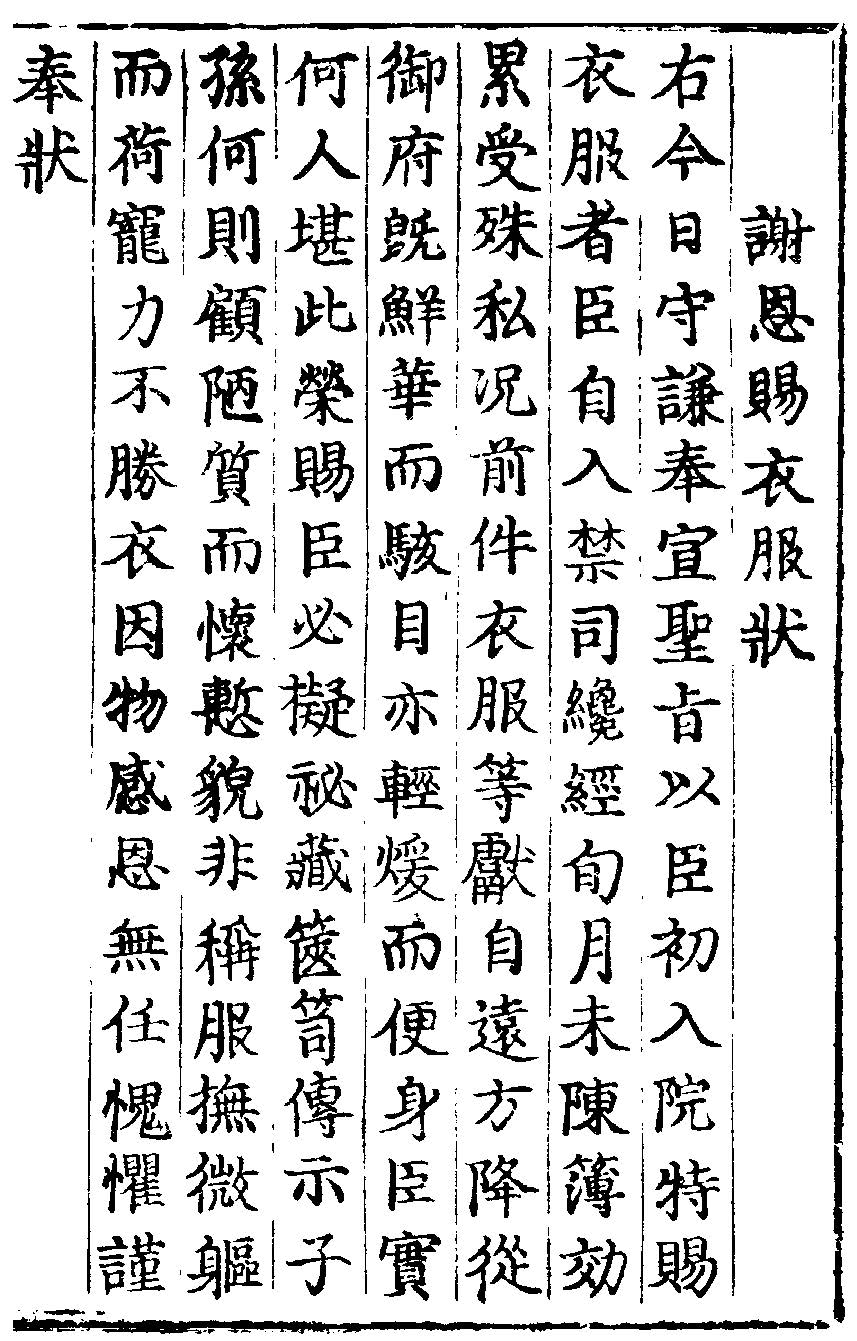 謝恩賜衣服狀
右今日守謙奉宣聖旨以臣初入院特賜
衣服者臣自入禁司纔經旬月未陳薄効
累受殊私况前件衣服等獻自遠方降從
御府旣鮮華而駭目亦輕煖而便身臣實
何人堪此榮賜臣必擬祕藏篋笥傳示子
孫何則顧陋質而懷慙貌非稱服撫微軀
而荷寵力不勝衣因物感恩無任愧懼謹
奉狀